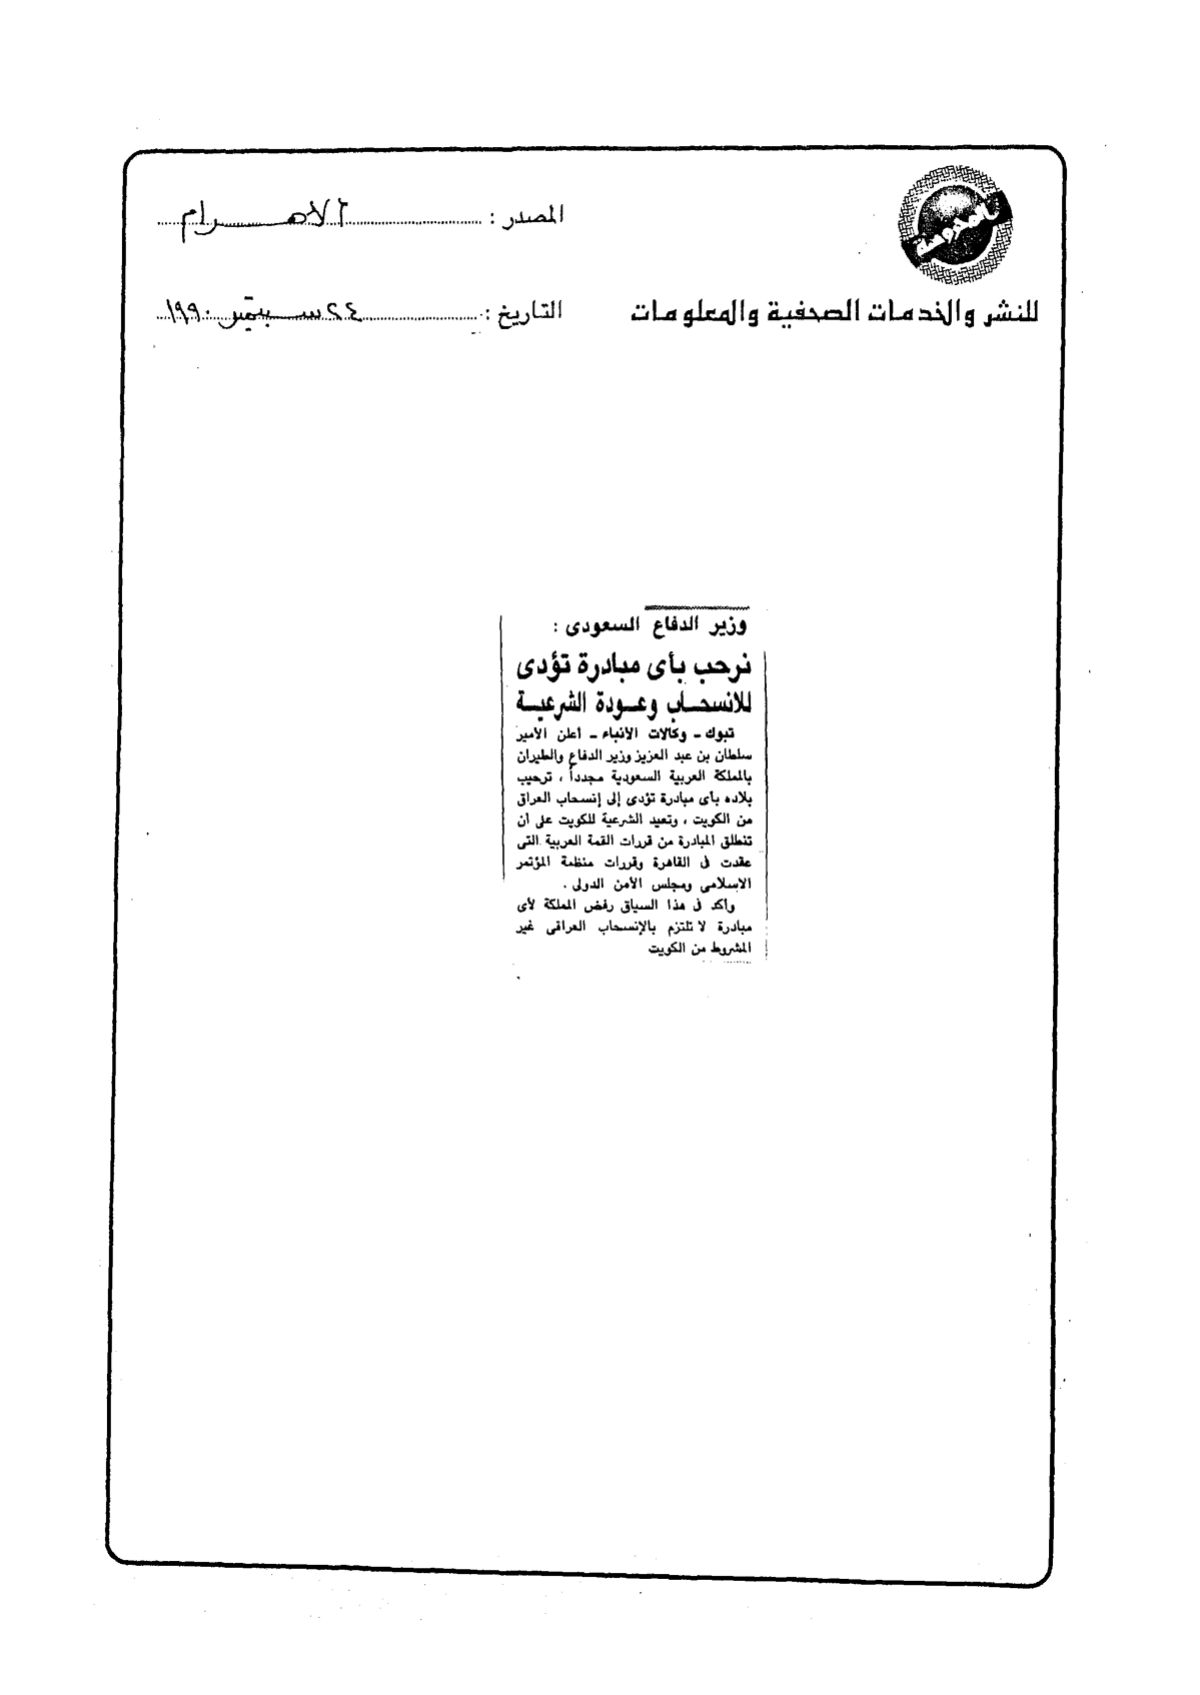 المصدر : الاهرام
للنشر والخدمات الصحفية والمعلومات
التاريخ : ٢٤ سبتمبر ١٩٩٠
وزير الدفاع السعودى :
نرحب بأى مبادرة تؤدى
للانسحاب وعودة الشرعية
تبوك - وكالات الأنباء - أعلن الأمير
سلطان بن عبد العزيز وزير الدفاع والطيران
بالمملكة العربية السعودية مجدداً ، ترحيب
بلاده بأى مبادرة تؤدى إلى إنسحاب العراق
من الكويت ، وتعيد الشرعية للكويت على أن
تنطلق المبادرة من قررات القمة العربية التى
عقدت فى القاهرة وقررات منظمة المؤتمر
الإسلامى ومجلس الأمن الدولى .
وأكد فى هذا السياق رفض المملكة لأى
مبادرة لا تلتزم بالإنسحاب العراقى غير
المشروط من الكويت